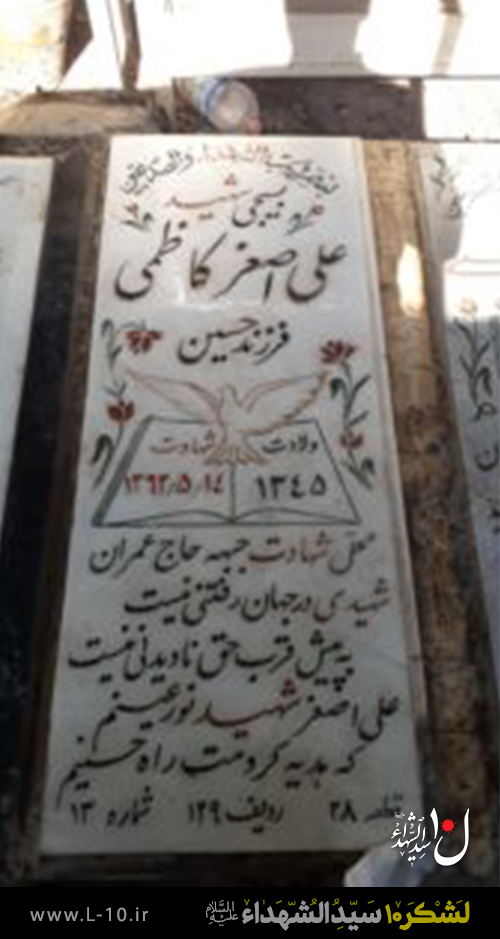 الشهداء والصدیقین
بسیجی شهید
علی اصغر کاظمی
فرزند حسین
ولادت شهادت
۱۳۴۵ ۱۳۹۲/۵/۱٤
محل شهادت جبهه حاج عمران
شهیدی در جهان رفتنی نیست
به پیش قرب حق نادیدنی نیست
علی اصغر شهید نور عینم
که هدیه کردمت راه حسینم
قطعه ۲۸ ردیف ۱۲۹ شماره ۱۳
سیدالشهداء
لشکر۱۰ سیدالشهداء علیه‌السلام
www.L-10.ir